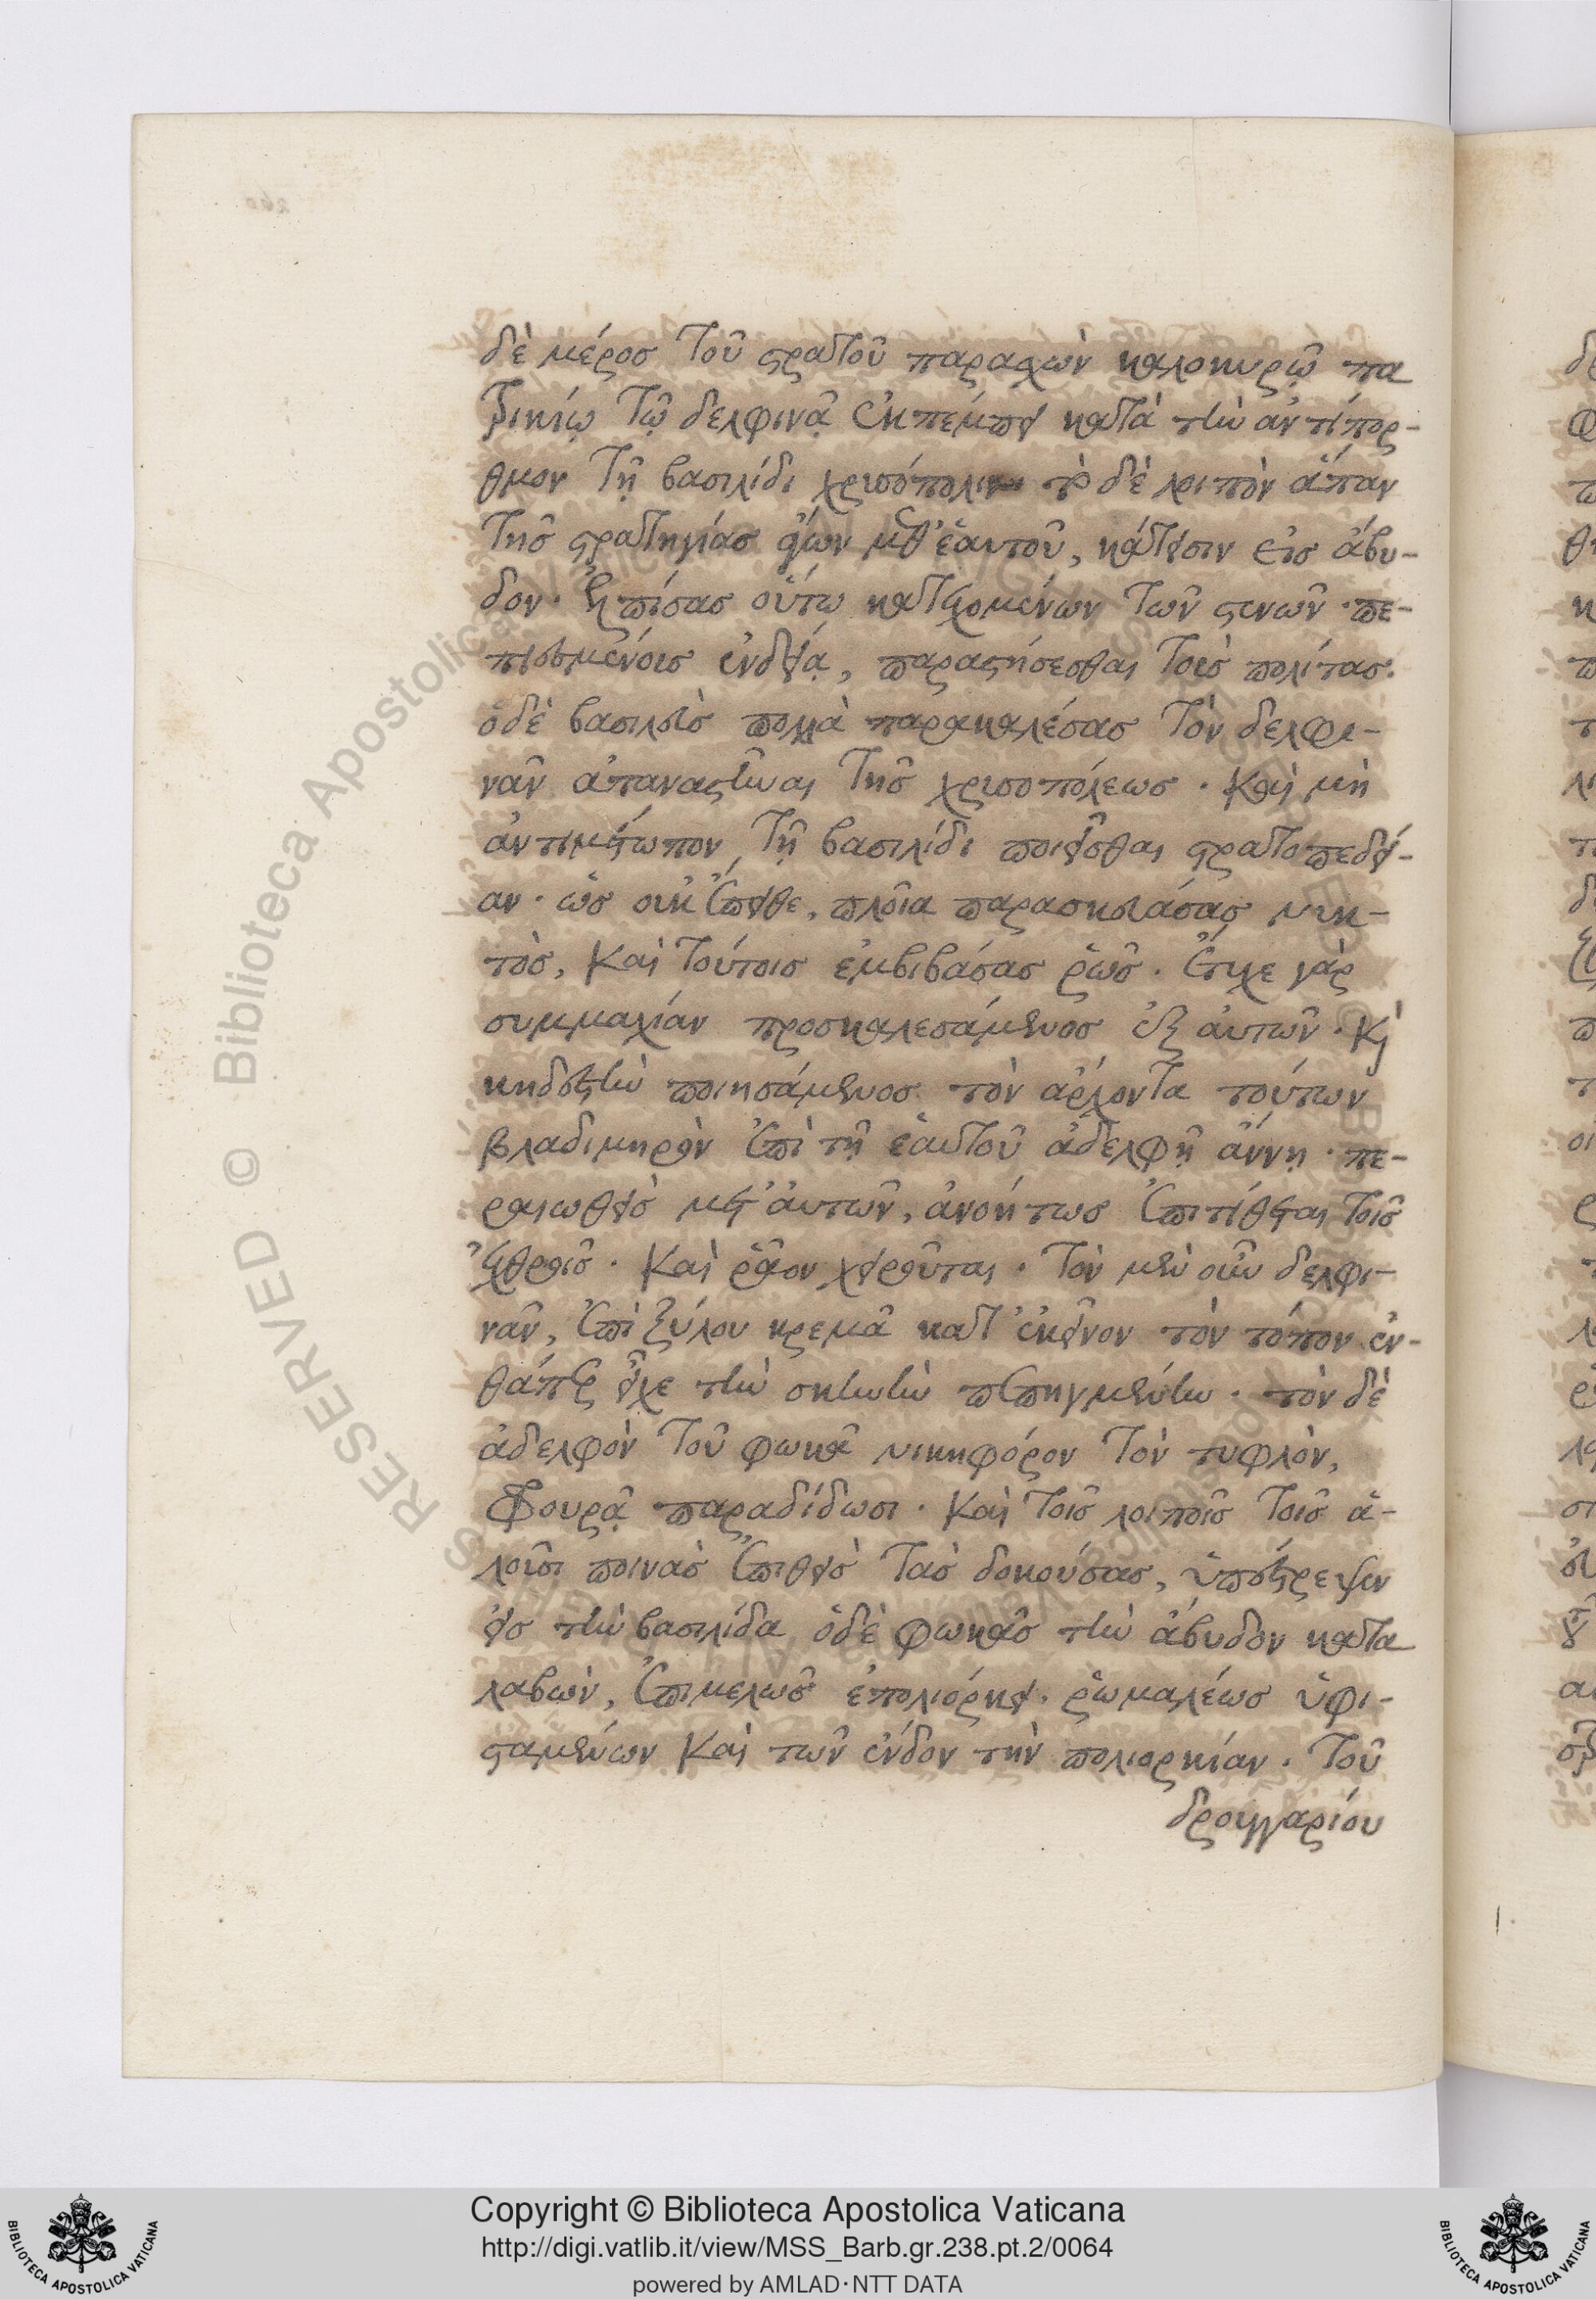 δὲ μέρος τοῦ στρατοῦ παρασχὼν καλοκυρῷ πα
τρικίῳ τῷ δελφινᾷ ἐκπέμπει κατὰ τὴν ἀντίπορ-
θμον τῇ βασιλίδι χρισόπολιν τὸ δὲ λοιπὸν ἅπαν
τῆς στρατηγίας ἄγων μεθ' ἑαυτοῦ, κάτεισιν εἰς ἄβυ-
δον. ἐλπίσας οὕτω κατεχομένων τῶν στενῶν πε-
πιεσμένοις ἐνδείᾳ, παραστήσεσθαι τοὺς πολίτας.
ὁ δὲ βασιλεὺς πολλὰ παρακαλέσας τὸν δελφι-
νᾶν ἀπαναστῆναι τῆς χρισοπόλεως. καὶ μὴ
ἀντιμέτωπον τῇ βασιλίδι ποιεῖσθαι στρατοπεδεί-
αν. ὡς οὐκ ἔπειθε, πλοῖα παρασκευάσας νυκ-
τὸς, καὶ τούτοις ἐμβιβάσας ῥῶς. ἔτυχε γὰρ
συμμαχίαν προσκαλεσάμενος ἐξ αὐτῶν. καὶ
κηδεστὴν ποιησάμενος τὸν ἄρχοντα τούτων
βλαδιμηρὸν ἐπὶ τῇ ἑαυτοῦ ἀδελφῇ ἄννῃ. πε-
ραιωθεὶς μετ' αὐτῶν, ἀνοήτως ἐπιτίθεται τοῖς
ἐχθροῖς. καὶ ῥᾷον χειροῦται. τὸν μὲν οὖν δελφι-
νᾶν, ἐπὶ ξύλου κρεμᾷ κατ' ἐκεῖνον τὸν τόπον ἐν-
θάπερ εἶχε τὴν σκηνὴν πεπηγμένην. τὸν δὲ
ἀδελφὸν τοῦ φωκᾶ νικηφόρον τὸν τυφλὸν,
φρουρᾷ παραδίδωσι. καὶ τοῖς λοιποῖς τοῖς ἁ-
λοῦσι ποινὰς ἐπιθεὶς τὰς δοκούσας, ὑπέστρεψεν
εἰς τὴν βασιλίδα ὁ δὲ φωκᾶς τὴν ἄβυδον κατα
λαβὼν, ἐπιμελῶς ἐπολιόρκει. ῥωμαλέως ὑφι-
σταμένων καὶ τῶν ἔνδον τὴν πολιορκίαν. τοῦ
δρουγγαρίου
Copyright © Biblioteca Apostolica Vaticana
http://digi.vatlib.it/view/MSS_Barb.gr.238.pt.2/0064
powered by AMLAD·NTT DATA